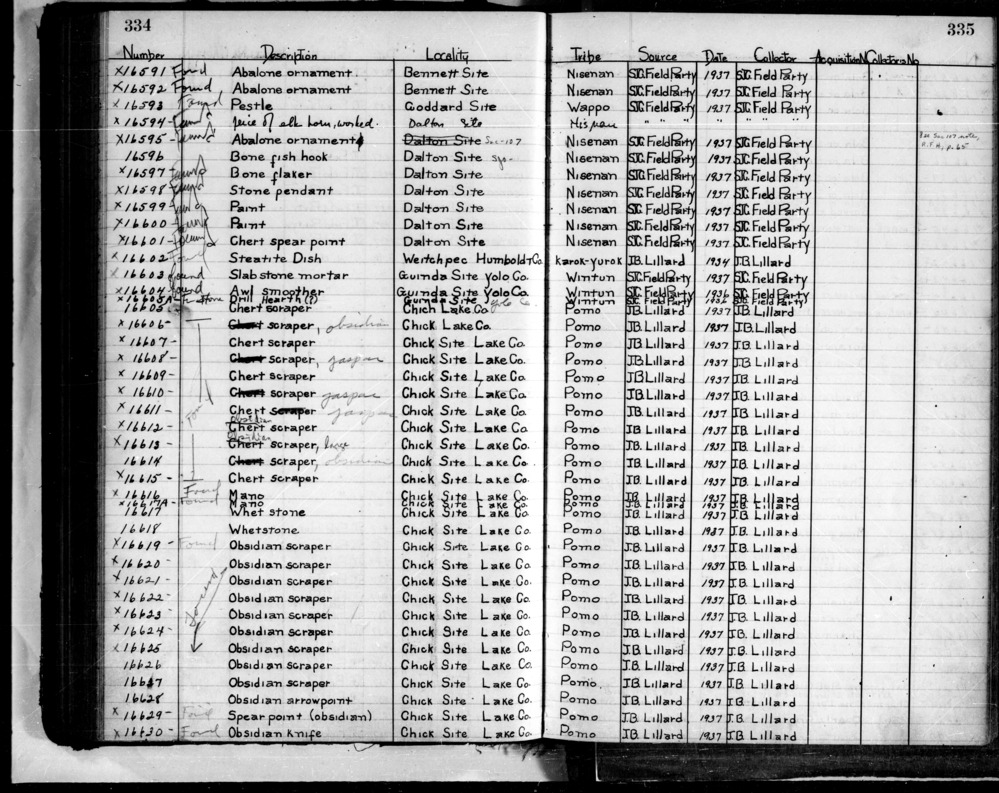 334 335
Number Description Locality Tribe Source Date Collector Acquisition No Collectors No
X16591 Found Abalone ornament Bennett Site Nisenan SJC Field Party 1937 SJC Field Party
X16592 Found Abalone ornament Bennett Site Nisenan SJC Field Party 1937 SJC Field Party
X16593 Found Pestle Goddard Site Wappo SJC Field Party 1937 SJC Field Party
X16594- Found piece of elk horn, worked. Dalton Site " " " " " "
X16595- Found Abalone ornament Dalton Site Sac-107 Nisenan SJC Field Party 1937 SJC Field Party See Sac 107 notes, p. 65
16596 Bone fish hook Dalton Site Nisenan SJC Field Party 1937 SJC Field Party
X16597 Found Bone flaker Dalton Site Nisenan SJC Field Party 1937 SJC Field Party
X16598 Found Stone pendant Dalton Site Nisenan SJC Field Party 1937 SJC Field Party
X16599- Found Paint Dalton Site Nisenan SJC Field Party 1937 SJC Field Party
X16600- Found Paint Dalton Site Nisenan SJC Field Party 1937 SJC Field Party
X16601- Found Chert spear point Dalton Site Nisenan SJC Field Party 1937 SJC Field Party
X16602- Found Steatite Dish Weitchpec Humboldt Co. Karok-Yurok J.B. Lillard 1934 J.B. Lillard
X16603 Found Slab stone mortar Guinda Site Yolo Co. Wintun SJC Field Party 1937 SJC Field Party
X16604 Found Awl smoother Guinda Site Yolo Co. Wintun SJC Field Party 1936 SJC Field Party
X16605A stone Drill Hearth (?) Guinda Site Yolo Co Wintun SJC Field Party 1936 SJC Field Party
16605 Chert scraper Chich Lake Co. Pomo J.B. Lillard 1937 J.B. Lillard
X16606- Chert scraper, obsidian Chick Lake Co. Pomo J.B. Lillard 1937 J.B. Lillard
X16607- Chert scraper Chick Site Lake Co. Pomo J.B. Lillard 1937 J.B. Lillard
X16608- Chert scraper, jaspar Chick Site Lake Co. Pomo J.B. Lillard 1937 J.B. Lillard
X16609- Chert scraper Chick Site Lake Co. Pomo J.B. Lillard 1937 J.B. Lillard
X16610- Chert scraper jaspar Chick Site Lake Co. Pomo J.B. Lillard 1937 J.B. Lillard
X16611- Chert scraper jaspar Chick Site Lake Co. Pomo J.B. Lillard 1937 J.B. Lillard
Obsidian
X16612- Chert scraper Chick Site Lake Co. Pomo J.B. Lillard 1937 J.B. Lillard
Obsidian
X16613- Chert scraper, Chick Site Lake Co. Pomo J.B. Lillard 1937 J.B. Lillard
16614 Chert scraper, obsidian Chick Site Lake Co. Pomo J.B. Lillard 1937 J.B. Lillard
X16615- Chert scraper Chick Site Lake Co. Pomo J.B. Lillard 1937 J.B. Lillard
X16616 Found Mano Chick Site Lake Co. Pomo J.B. Lillard 1937 J.B. Lillard
X16617A- Found Mano Chick Site Lake Co. Pomo J.B. Lillard 1937 J.B. Lillard
16617 Whetstone Chick Site Lake Co. Pomo J.B. Lillard 1937 J.B. Lillard
16618 Whetstone Chick Site Lake Co. Pomo J.B. Lillard 1937 J.B. Lillard
X16619- Found Obsidian scraper Chick Site Lake Co. Pomo J.B. Lillard 1937 J.B. Lillard
X16620- Obsidian scraper Chick Site Lake Co. Pomo J.B. Lillard 1937 J.B. Lillard
X16621- Found Obsidian scraper Chick Site Lake Co. Pomo J.B. Lillard 1937 J.B. Lillard
X16622- Obsidian scraper Chick Site Lake Co. Pomo J.B. Lillard 1937 J.B. Lillard
X16623- Obsidian scraper Chick Site Lake Co. Pomo J.B. Lillard 1937 J.B. Lillard
X16624- Obsidian scraper Chick Site Lake Co. Pomo J.B. Lillard 1937 J.B. Lillard
X16625 Obsidian scraper Chick Site Lake Co. Pomo J.B. Lillard 1937 J.B. Lillard
16626 Obsidian scraper Chick Site Lake Co. Pomo J.B. Lillard 1937 J.B. Lillard
16627 Obsidian scraper Chick Site Lake Co. Pomo. J.B. Lillard 1937 J.B. Lillard
16628 Obsidian arrowpoint Chick Site Lake Co. Pomo J.B. Lillard 1937 J.B. Lillard
X16629- Found Spear point (obsidian) Chick Site Lake Co. Pomo J.B. Lillard 1937 J.B. Lillard
X16630- Found Obsidian Knife Chick Site Lake Co. Pomo J.B. Lillard 1937 J.B. Lillard